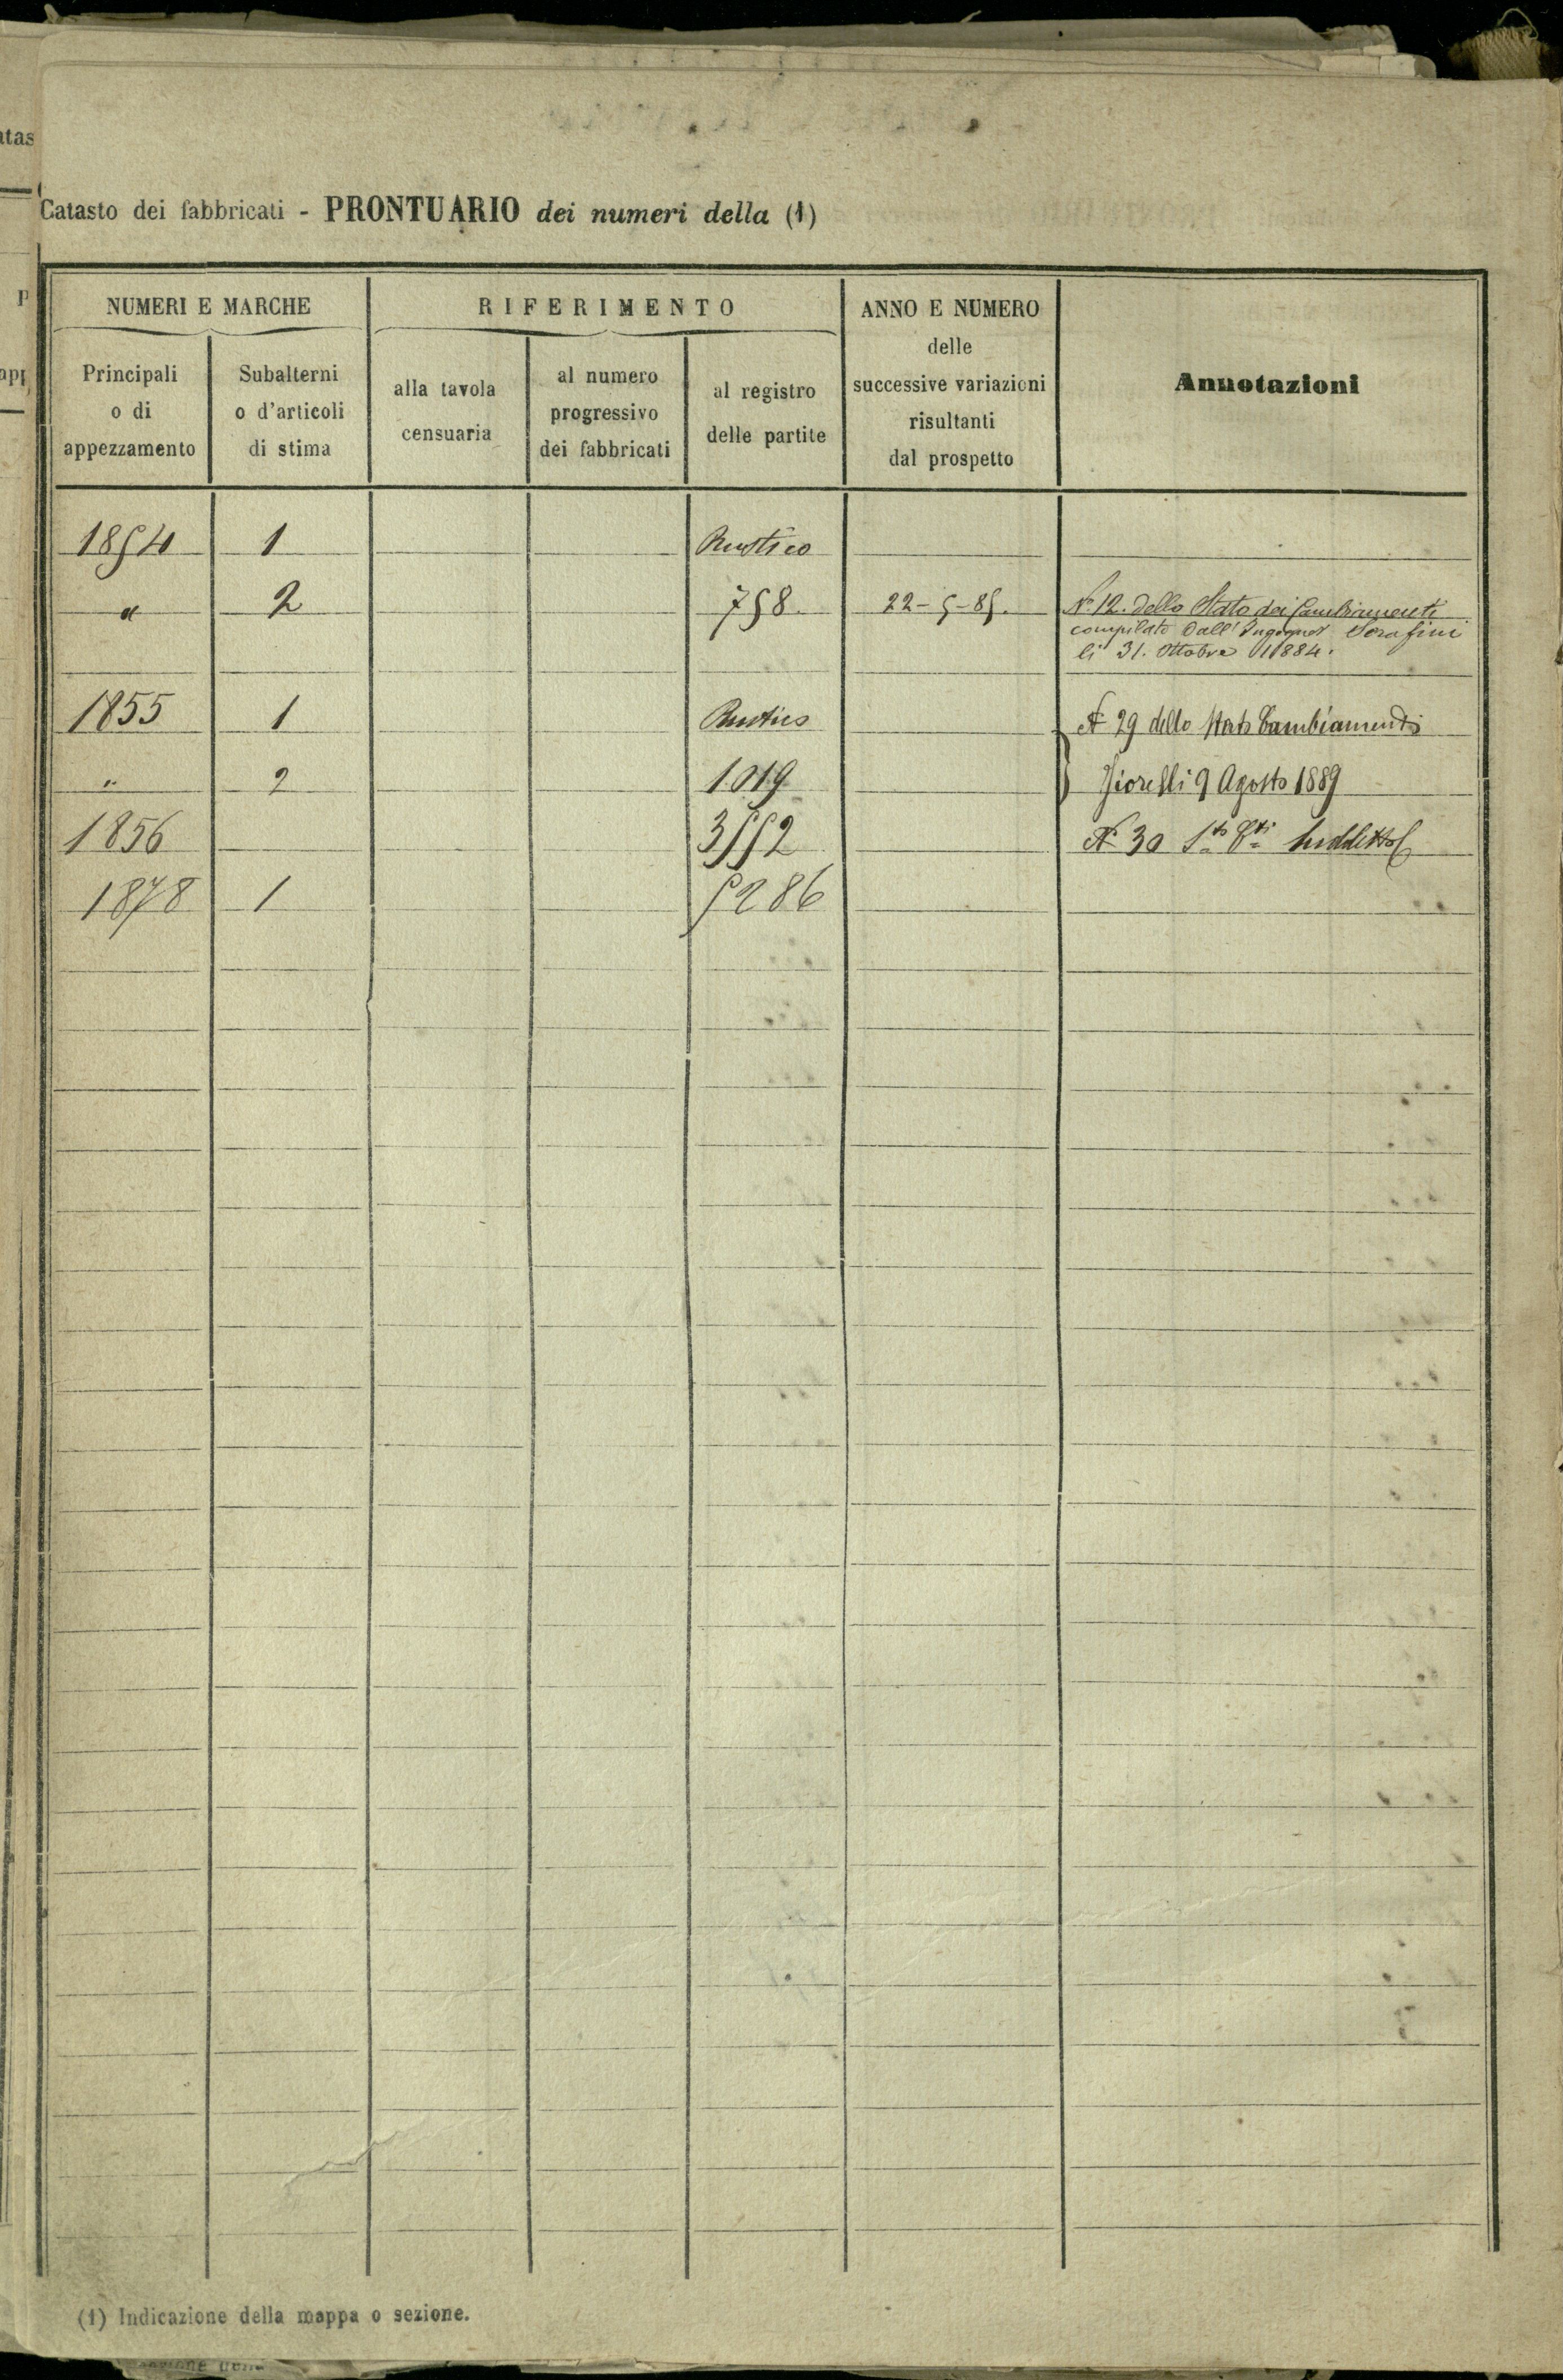 Catasto dei fabbricati - PRONTUARIO dei numeri della (1)
NUMERI E MARCHE
RIFERIMENTO
ANNO E NUMERO
delle
successive variazioni
risultanti
dal prospetto
Annotazioni
Principali
o di
appezzamento
Subalterni
o d'articoli
di stima
alla tavola
censuaria
al numero
progressivo
dei fabbricati
al registro
delle partite
1854 1 Rustico
" 2 758. 22-5-85. N. 12. dello Stato dei Cambiamenti
compilato dall'Ingegner Serafini
li 31. Ottobre 1884.
1855 1 Rustico N 29 dello Stato Cambiamenti
" 2 1019 Fiorelli 9 Agosto 1889
1856 3552 N. 30 Sto Cti Suddetto
1878 1 5286
(1) Indicazione della mappa o sezione.